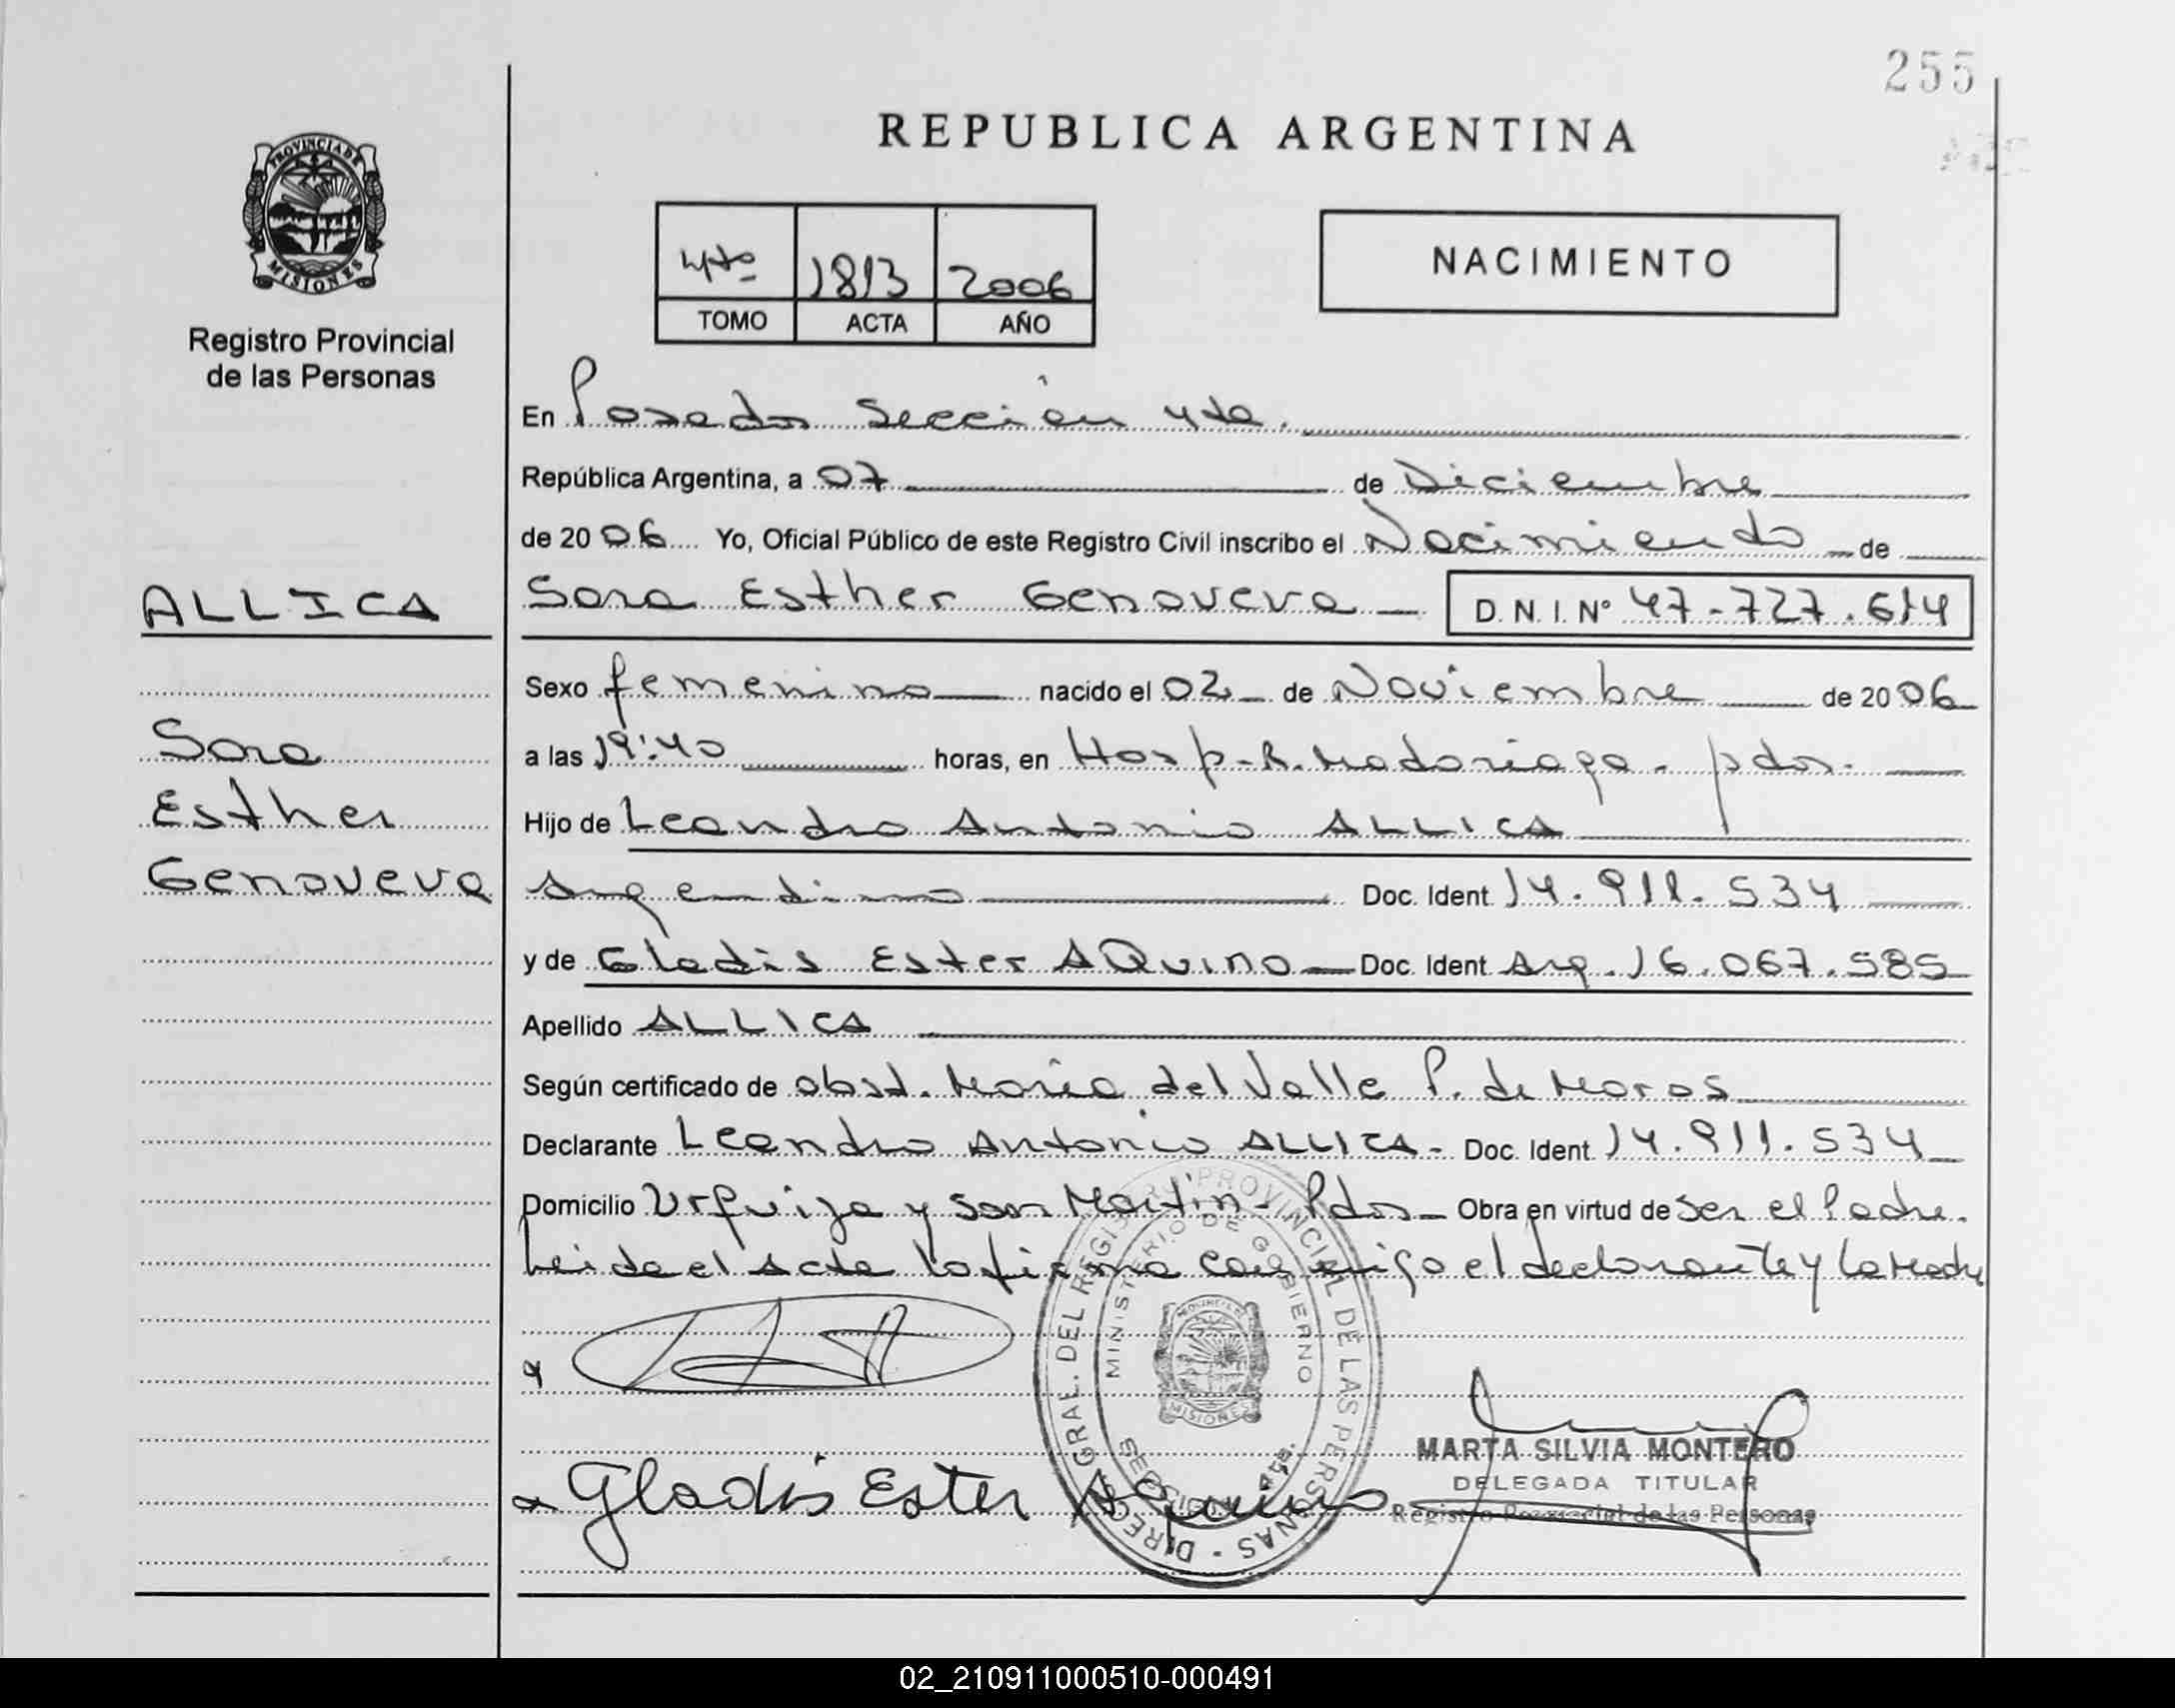 255
REPUBLICA ARGENTINA
PROVINCIA DE
MISIONES
Registro Provincial
de las Personas
4to 1813 2006
TOMO ACTA AÑO
NACIMIENTO
En Posadas Sección 4ta.
República Argentina, a 07 de Diciembre
de 2006 Yo, Oficial Público de este Registro Civil inscribo el Nacimiento de
ALLICA
Sara Esther Genoveva D.N.I. Nº 47.727.614
Sexo femenino nacido el 02 de Noviembre de 2006
Sara
a las 19:40 horas, en Hosp. R. Madariaga. pdas.
Esther
Hijo de Leandro Antonio ALLICA
Genoveva
Argentino Doc. Ident 14.911.534
y de Gladis Ester AQuino Doc. Ident Arg. 16.067.585
Apellido ALLICA
Según certificado de obst. María del Valle P. de Moros
Declarante Leandro Antonio ALLICA - Doc. Ident 14.911.534
Domicilio Urquiza y San Martín - Pdas Obra en virtud de ser el Padre.
Leida el Acta la firma conmigo el declarante y la Madre
DIREC. GRAL. DEL REGISTRO PROVINCIAL DE LAS PERSONAS
MINISTERIO DE GOBIERNO
MISIONES
MARTA SILVIA MONTERO
DELEGADA TITULAR
Registro Provincial de las Personas
Gladis Ester Aquino
02_210911000510-000491